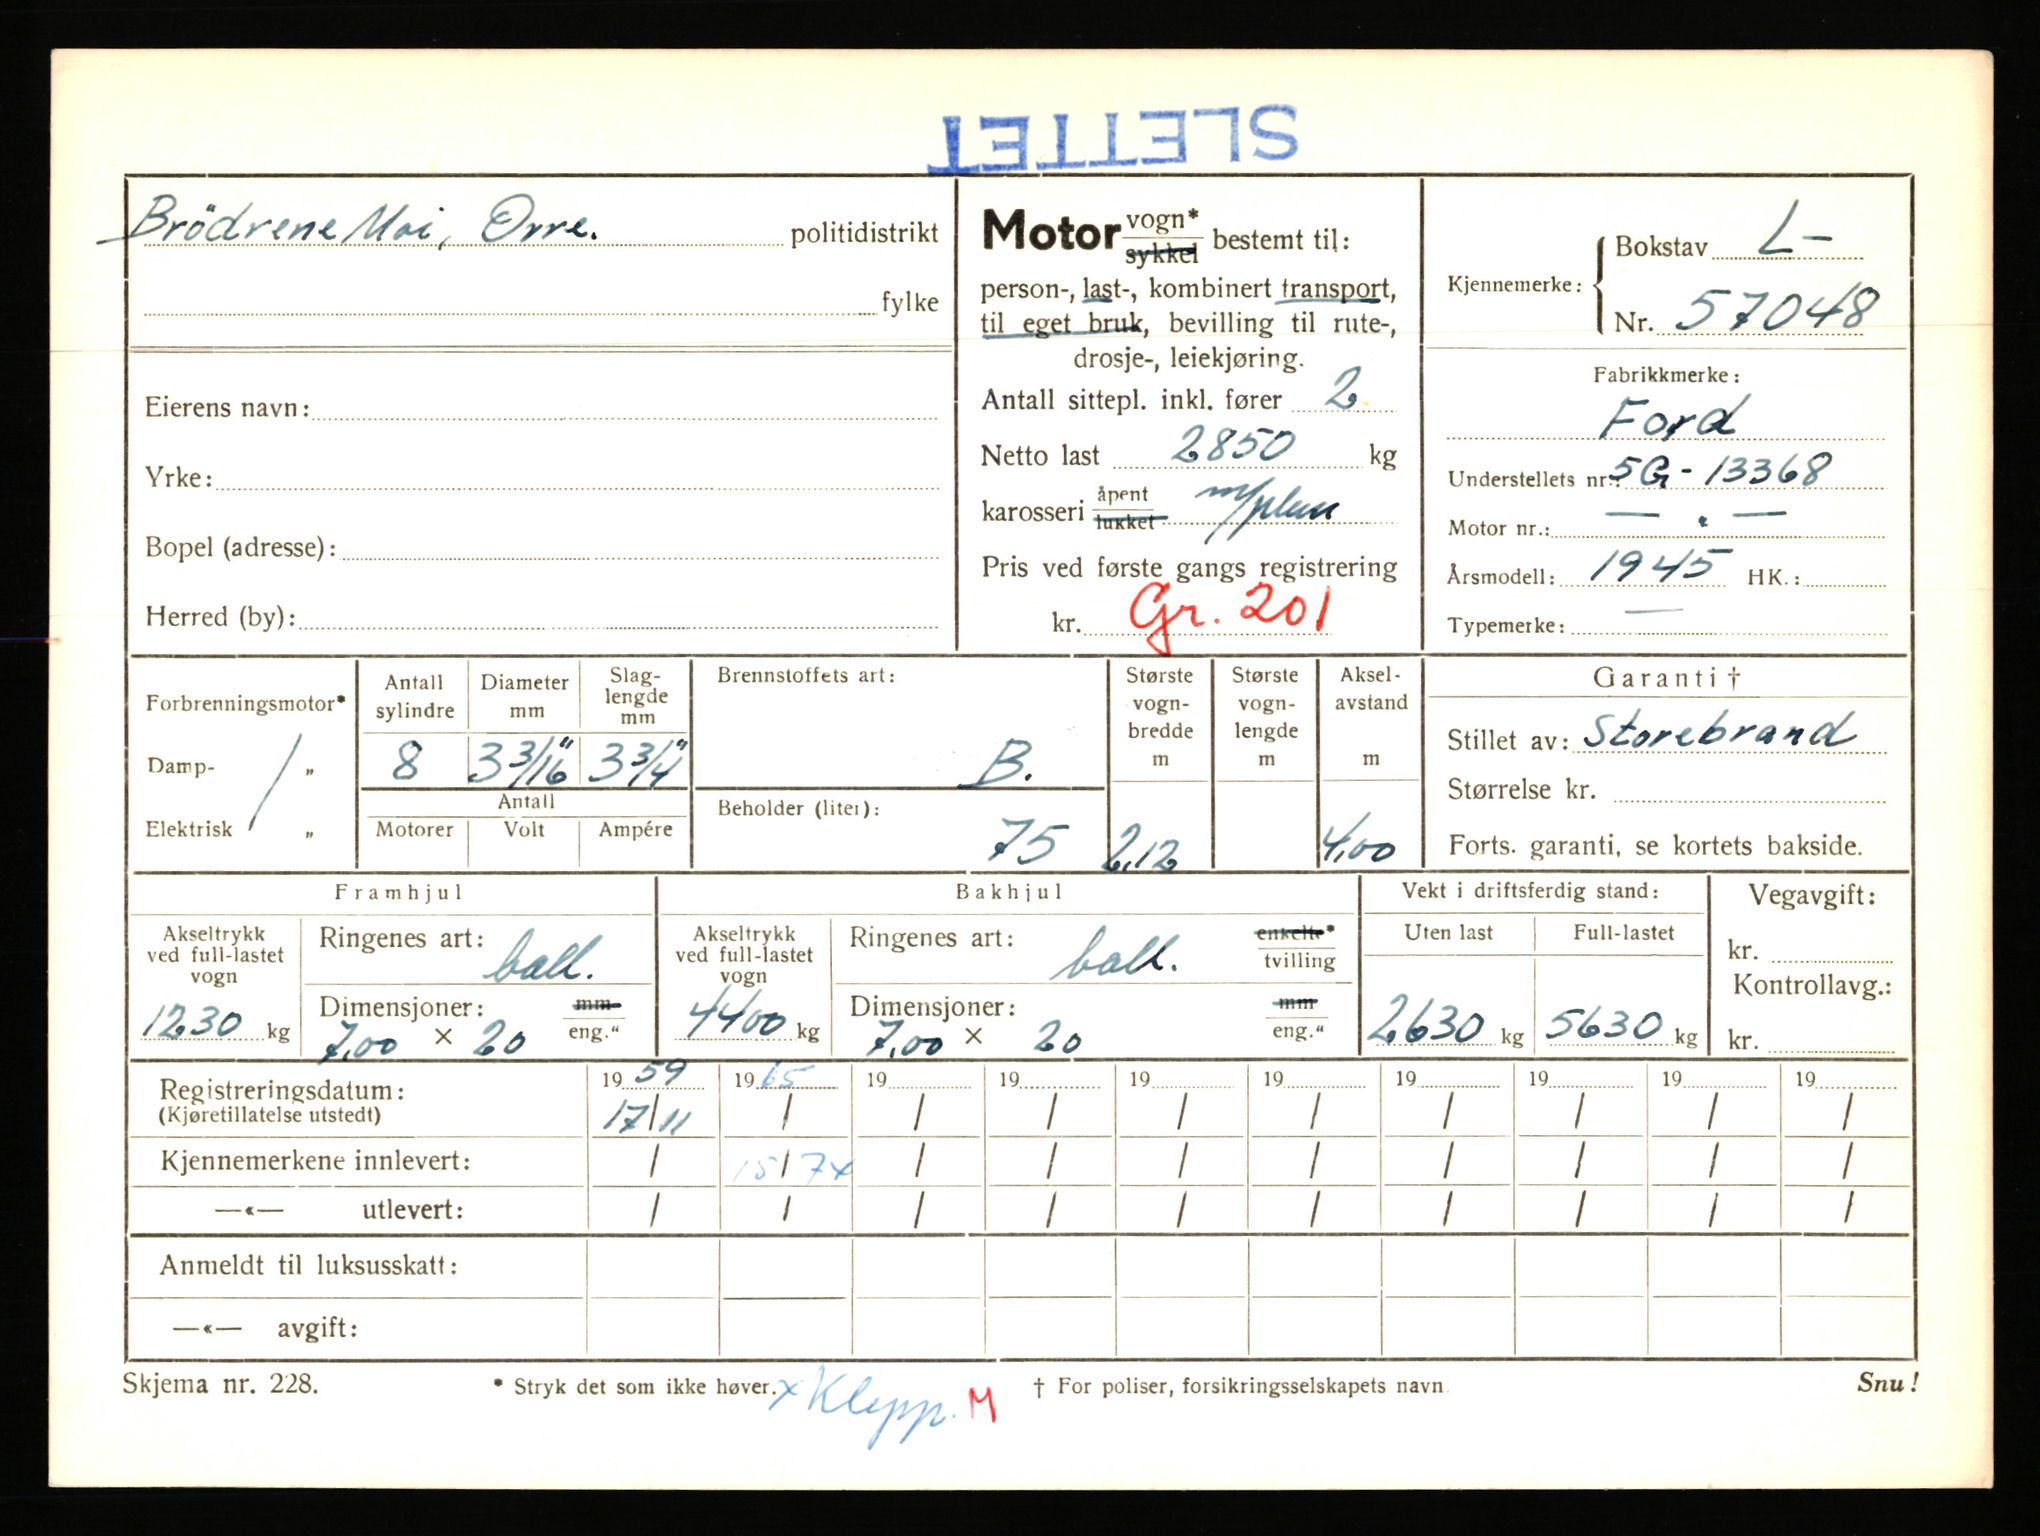 SLETTET
Brödrene Moi, Orre. politidistrikt
fylke
Eierens navn:
Yrke:
Bopel (adresse):
Herred (by):
Motor vogn* sykkel bestemt til:
person-, last-, kombinert transport,
til eget bruk, bevilling til rute-,
drosje-, leiekjøring.
Antall sittepl. inkl. fører 2
Netto last 2850 kg
karosseri åpent lukket m/plan
Pris ved første gangs registrering
kr. Gr. 201
Kjennemerke: Bokstav L-
Nr. 57048
Fabrikkmerke:
Ford
Understellets nr.: 5G-13368
Motor nr.: — " —
Årsmodell: 1945 HK.:
Typemerke: —
Forbrenningsmotor*
Damp- „
Elektrisk „
Antall sylindre 8
Diameter mm 3 3/16"
Slag-lengde mm 3 3/4"
Antall
Motorer Volt Ampére
Brennstoffets art:
B.
Beholder (liter):
75
Største vogn-bredde m 2,12
Største vogn-lengde m
Aksel-avstand m 4,00
Garanti †
Stillet av: Storebrand
Størrelse kr.
Forts. garanti, se kortets bakside.
Framhjul
Akseltrykk ved full-lastet vogn 1230 kg
Ringenes art: ball.
Dimensjoner: mm eng."
7,00 × 20
Bakhjul
Akseltrykk ved full-lastet vogn 4400 kg
Ringenes art: ball. enkelte* tvilling
Dimensjoner: mm eng."
7,00 × 20
Vekt i driftsferdig stand:
Uten last Full-lastet
2630 kg 5630 kg
Vegavgift:
kr.
Kontrollavg.:
kr.
Registreringsdatum: 1959 1965 19 19 19 19 19 19 19 19
(Kjøretillatelse utstedt) 17/11 / / / / / / / / /
Kjennemerkene innlevert: / 15/7x / / / / / / / /
—«— utlevert: / / / / / / / / / /
Anmeldt til luksusskatt:
—«— avgift:
Skjema nr. 228. * Stryk det som ikke høver. x Klepp. M † For poliser, forsikringsselskapets navn Snu!